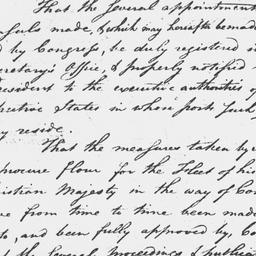 That the several appointment
nsuls made, & which may hereafter be made
d by Congress, be duly registered i
cretary's Office, & properly notified
resident to the executive authorities o
pective States in whose ports such
y reside.
That the measures taken by
procure flour for the Fleet of his
istian Majesty in the way of Con
ve from time to time been made
to, and been fully approved by, Con
the several Proceedings & publica